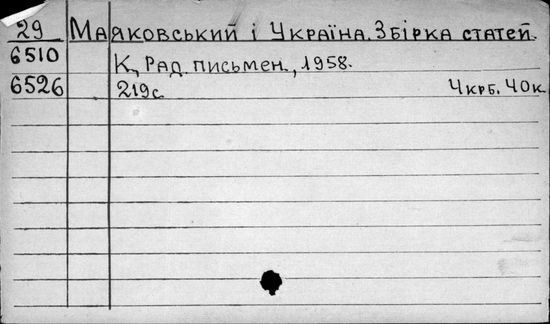 29 Маяковський і Україна. Збірка статей.
6510 К, Рад. письмен., 1958.
6526 219с. 4 крб. 40к.